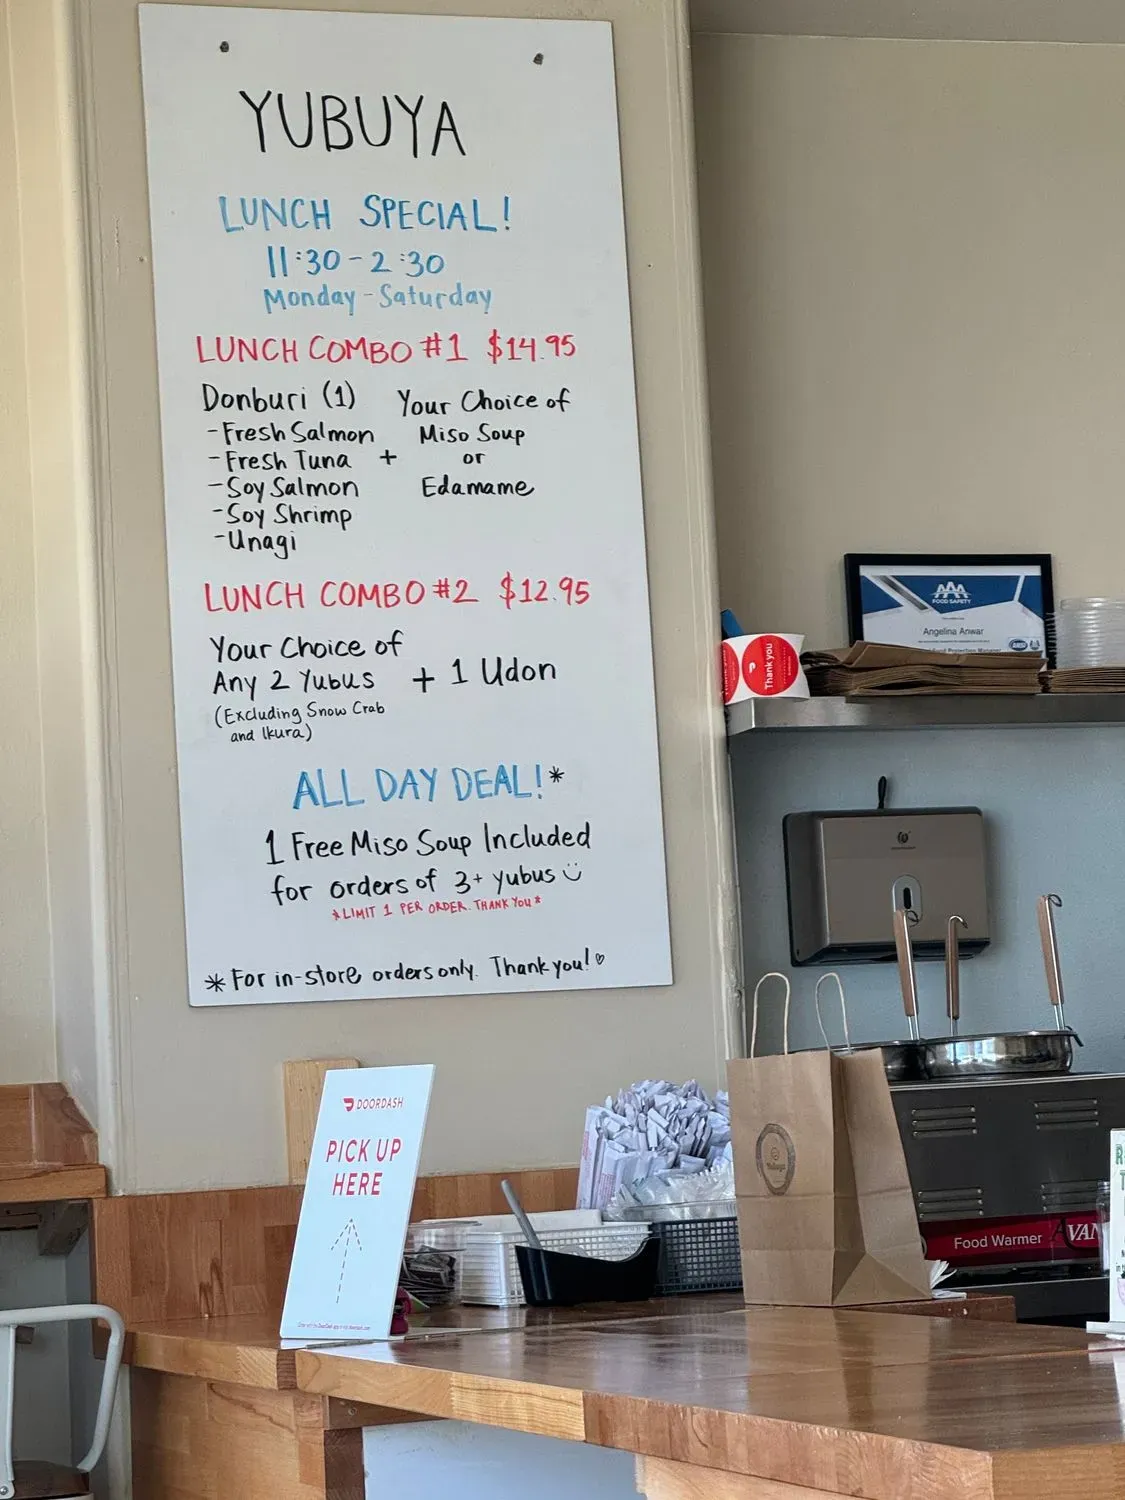 YUBUYA
LUNCH SPECIAL!
11:30-2:30
Monday-Saturday
LUNCH COMBO #1 $14.95
Donburi (1)
-Fresh Salmon
-Fresh Tuna
-Soy Salmon
-Soy Shrimp
-Unagi
+
Your Choice of
Miso Soup
or
Edamame
LUNCH COMBO #2 $12.95
Your Choice of
Any 2 Yubus
(Excluding Snow Crab
and Ikura)
+ 1 Udon
ALL DAY DEAL!*
1 Free Miso Soup Included
for orders of 3+ yubus
*LIMIT 1 PER ORDER. THANK YOU*
*For in-store orders only. Thank you!
AAA
FOOD SAFETY
Angelina Anwar
Food Protection Manager
Thank you
DOORDASH
PICK UP
HERE
Yubuya
Food Warmer
AVAN